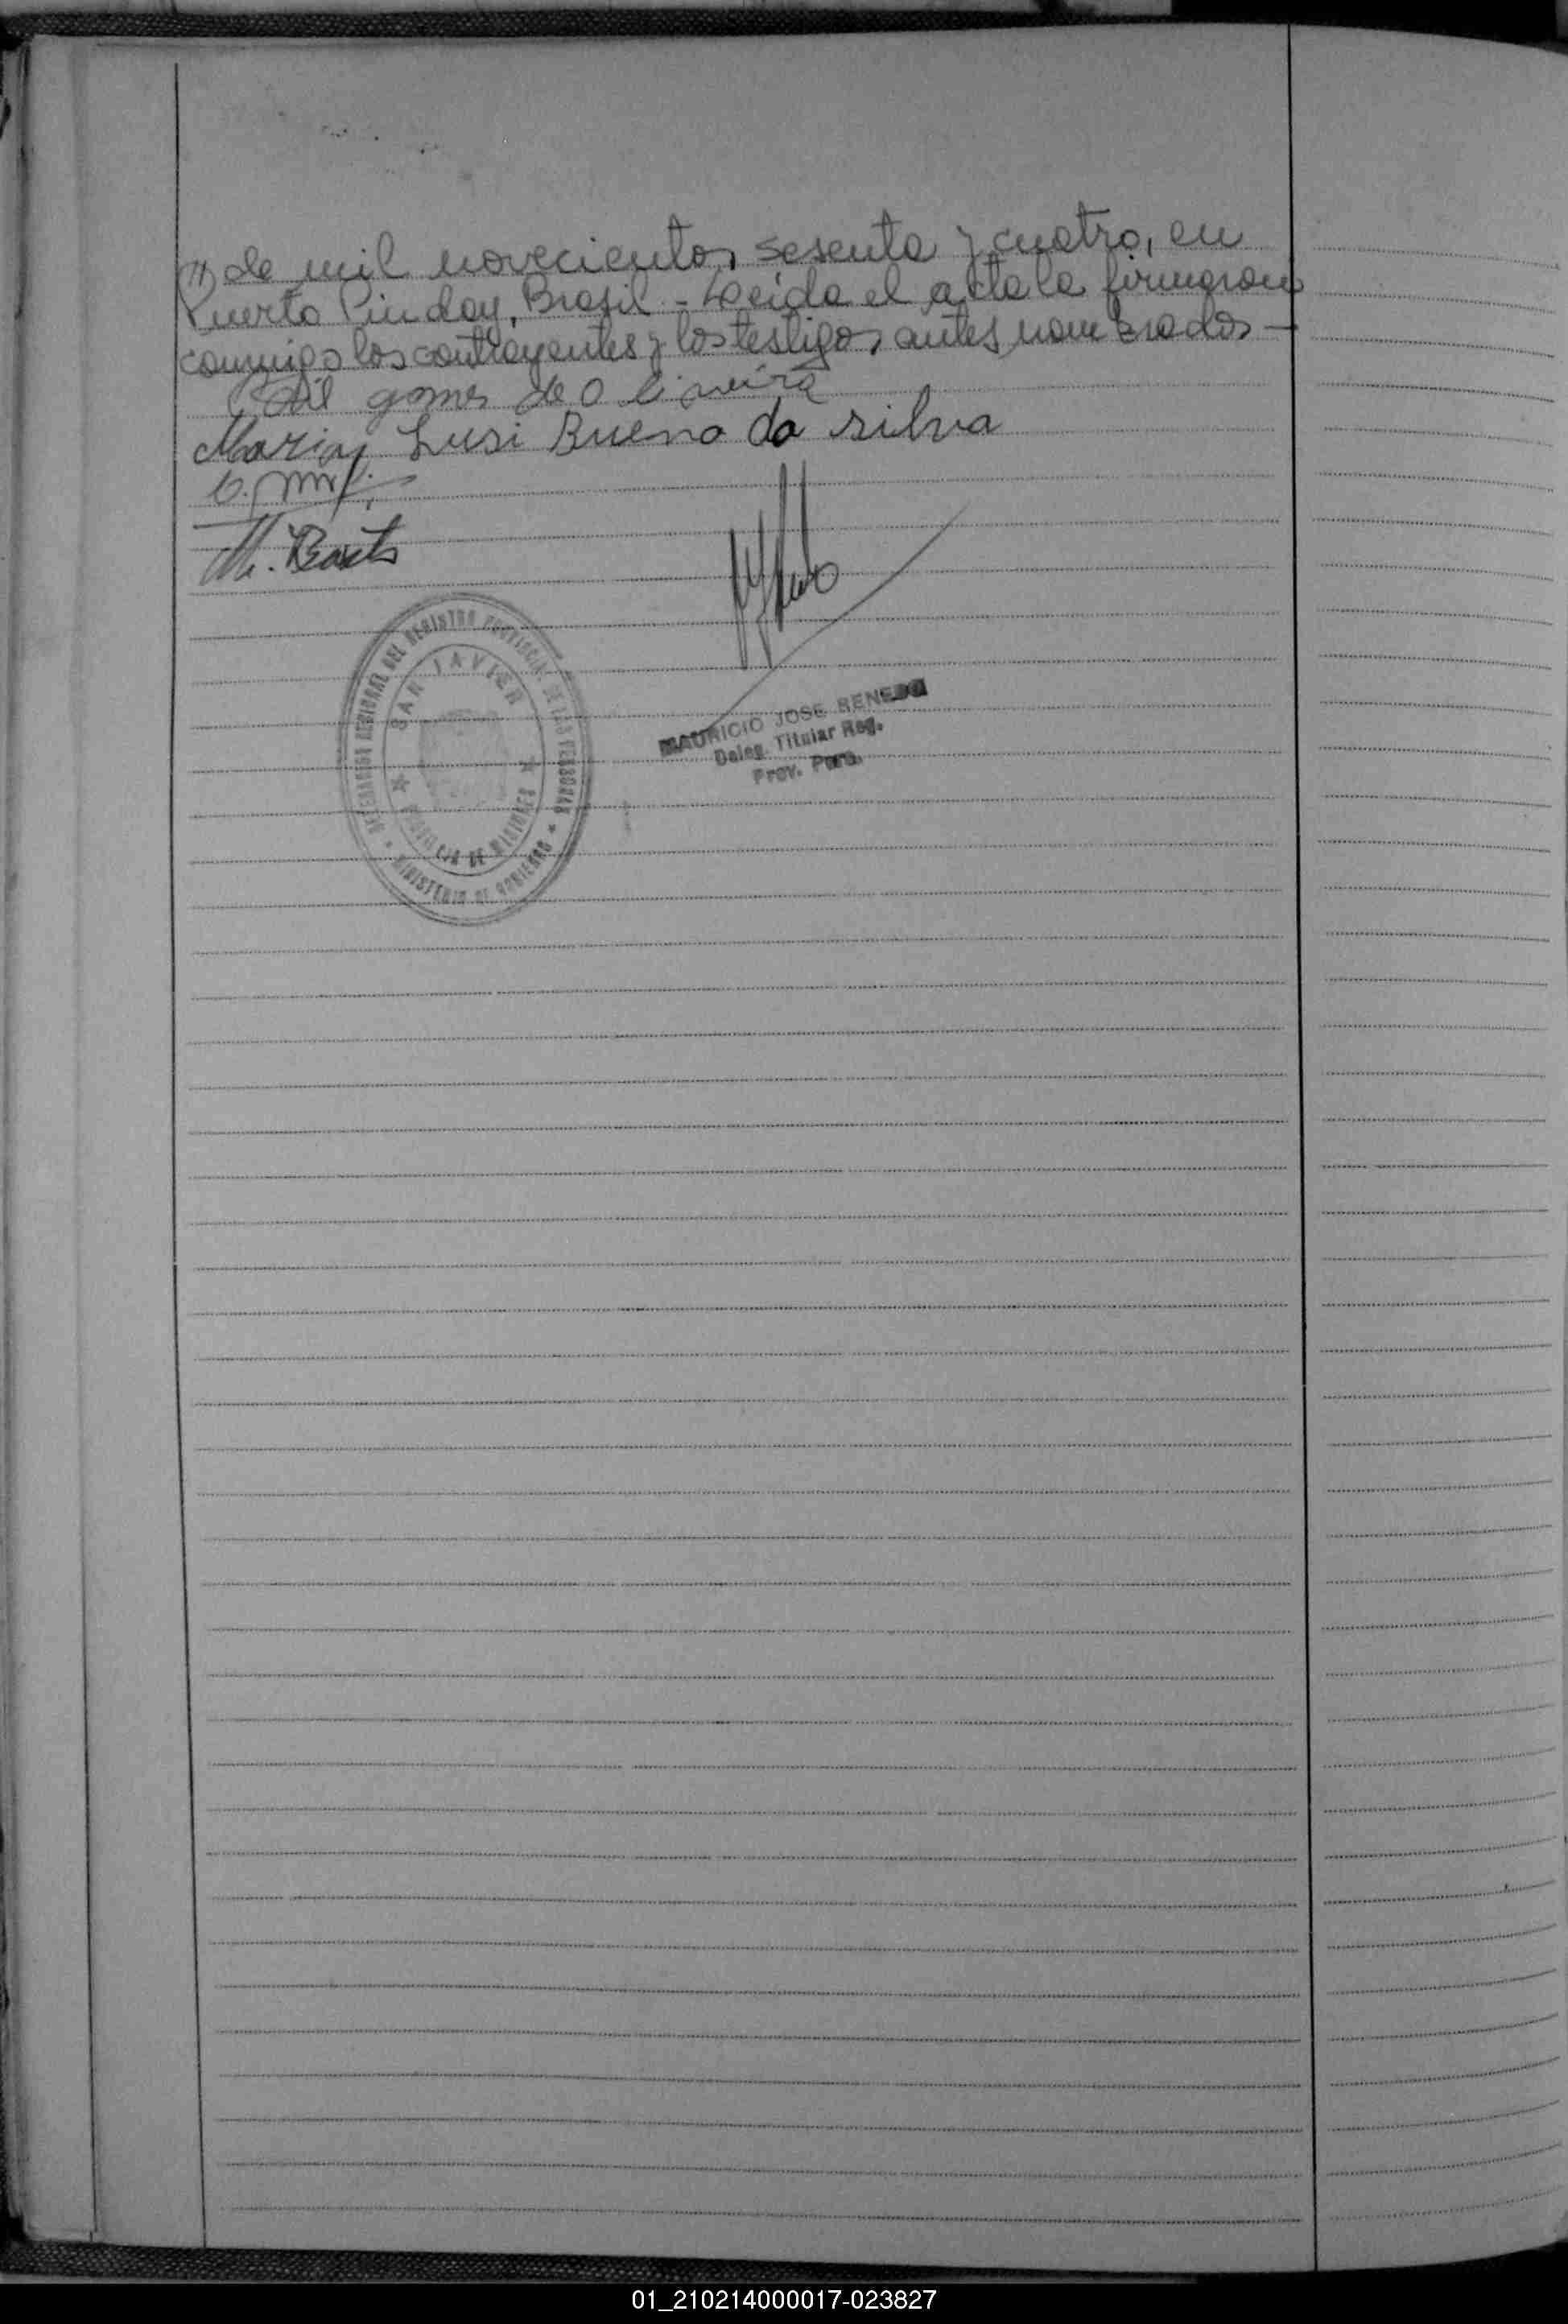 (11) de mil novecientos sesenta y cuatro, en
Puerto Pinday, Brasil - Leida el acta la firmaron
conmigo los contrayentes y los testigos antes nombrados -
Gil gomes de Oliveira
Maria Lusi Bueno da silva
DELEGACION REGIONAL DEL REGISTRO PROVINCIAL DE LAS PERSONAS
SAN JAVIER
PROVINCIA DE MISIONES
* MINISTERIO DE GOBIERNO *
MAURICIO JOSE BENEDO
Deleg. Titular Reg.
Prov. Pers.
01_210214000017-023827